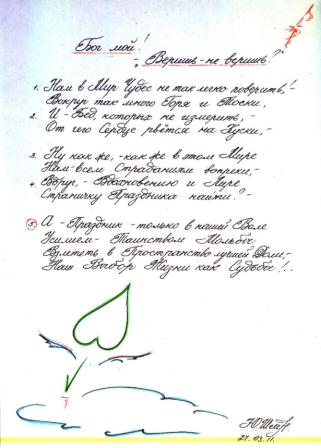 Бог мой!
„Веришь-не веришь?"
1. Нам в Мир Чудес не так легко поверить,!-
Вокруг так много Горя и Тоски,
2. И - Бед, которых не измерить,-
От чего Сердце рвётся на Куски,-
3. Ну как же,-как же в этом Мире
Нам-всем Страданиям вопреки,-
4. Вдруг,- Вдохновению и Лире
Страничку Праздника найти?-
5. А - Праздник - только в нашей Воле
Усилием - Таинством Мольбы
Взлететь в Пространство лучшей Доли,-
Наш Выбор Жизни как Судьбы!..
27.03.11.